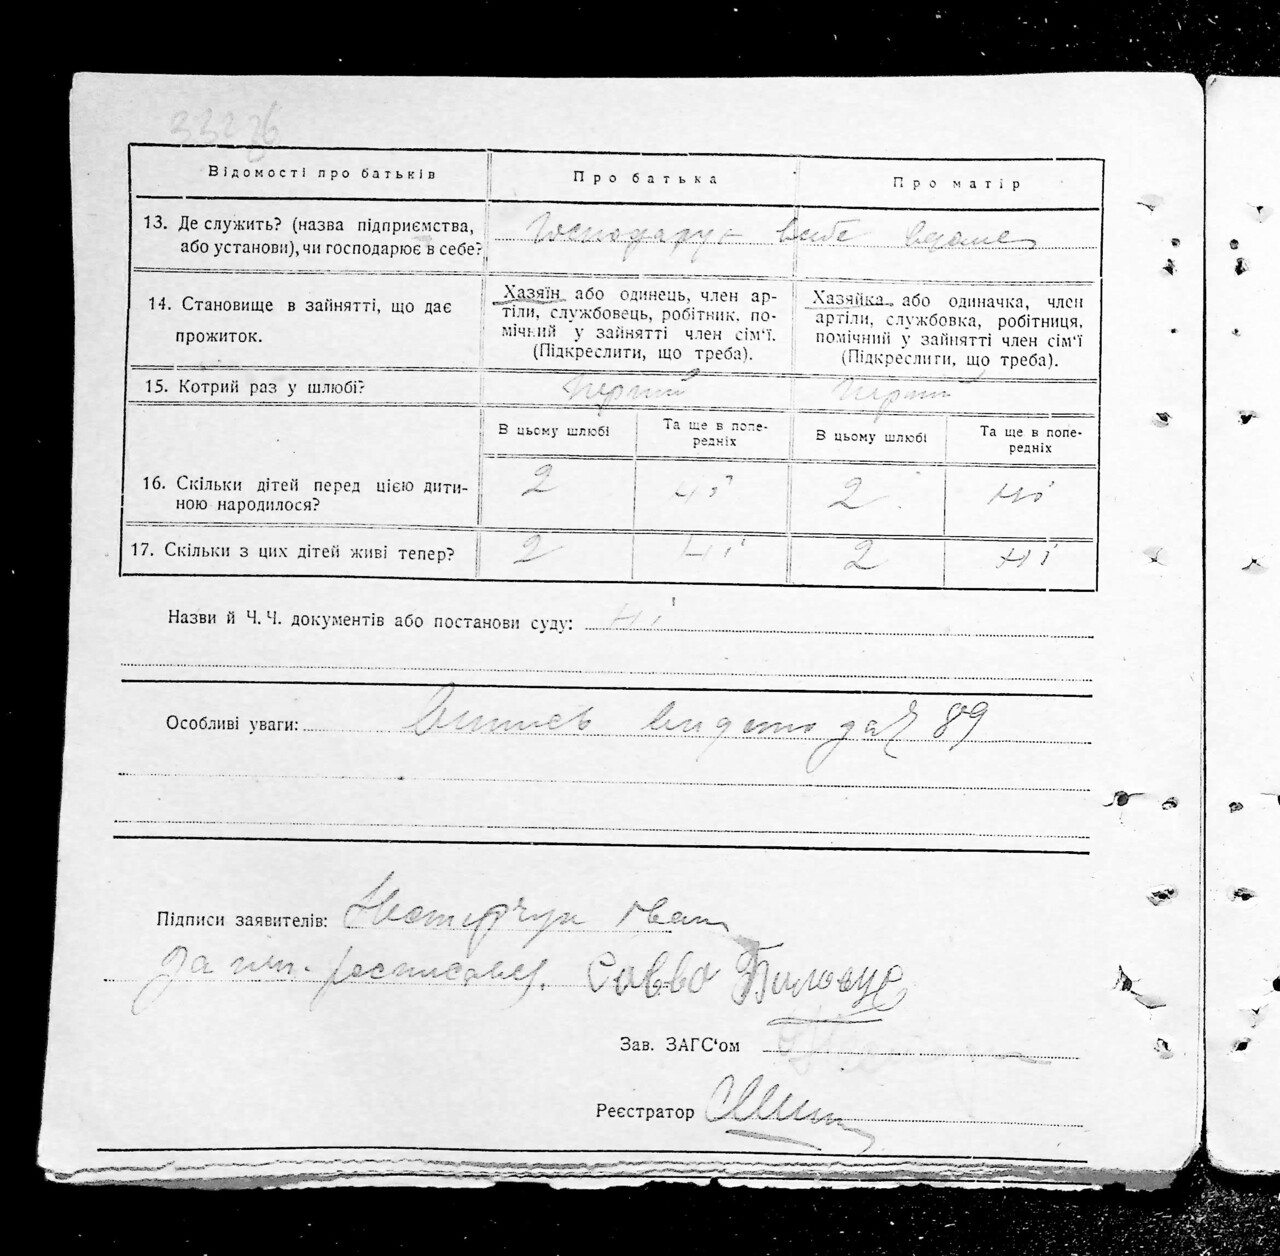 33226
Відомості про батьків Про батька Про матір
13. Де служить? (назва підприємства, або установи), чи господарює в себе? Господарує в себе вдома
14. Становище в зайнятті, що дає прожиток.
Хазяїн або одинець, член ар-
тіли, службовець, робітник, по-
мічний у зайнятті член сім'ї.
(Підкреслити, що треба).
Хазяйка або одиначка, член
артіли, службовка, робітниця,
помічний у зайнятті член сім'ї
(Підкреслити, що треба).
15. Котрий раз у шлюбі? перший перший
В цьому шлюбі Та ще в попе-редніх В цьому шлюбі Та ще в попе-редніх
16. Скільки дітей перед цією дити-
ною народилося? 2 ні 2 ні
17. Скільки з цих дітей живі тепер? 2 ні 2 ні
Назви й Ч. Ч. документів або постанови суду: ні
Особливі уваги: видано за № 89
Підписи заявителів: Іван
за росписався. Савво
Зав. ЗАГС'ом
Реєстратор